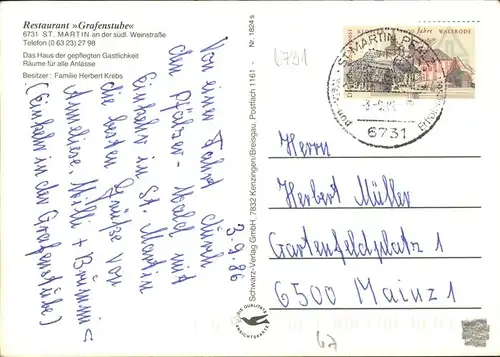 Restaurant »Grafenstube«
6731 ST. MARTIN an der südl. Weinstraße
Telefon (0 63 23) 27 98
Das Haus der gepflegten Gastlichkeit
Räume für alle Anlässe
Besitzer: Familie Herbert Krebs
3.9.86
Von einer Fahrt durch
den Pfälzer-Wald mit
Einkehr in St. Martin
die besten Grüße von
Anneliese, Willi +
(Einkehr in der Grafenstube)
Schwarz-Verlag GmbH, 7832 Kenzingen/Breisgau, Postfach 1161 - Nr. 1824 s
DIE QUALITÄTS
ANSICHTSKARTE
6731
JAHRE WALSRODE
ST MARTIN, PFALZ
6731
Herrn
Herbert Müller
Gartenfeldplatz 1
6500 Mainz 1
67